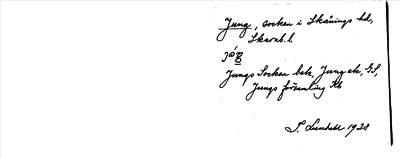 Jung, socken i Skånings hd,
Skarab. l.
Jungs Socken bet, Jung etc, GS,
Jungs församling Kb
1928